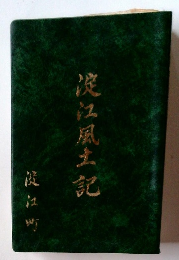 淀江風土記
淀江町